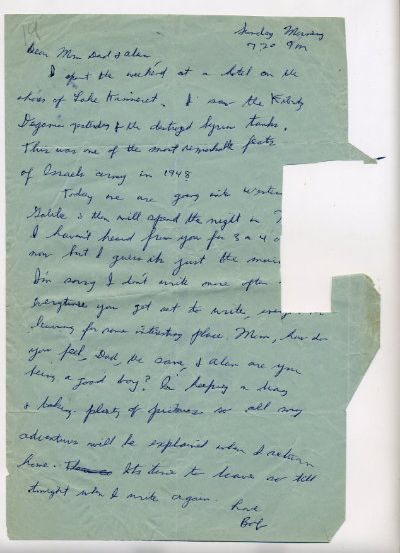 14
Sunday Morning
7:20 am
Dear Mom Dad & Alan
I spent the weekend at a hotel on the
shores of Lake Kinneret. I saw the Kibbutz
Degania yesterday & the destroyed Syrian tanks.
This was one of the most remarkable feats
of Israels army in 1948
Today we are going into Western
Galilee & then will spend the night in
I haven't heard from you for 3 or 4
now but I guess its just the
I'm sorry I don't write more often
everytime you get set to write,
leaving for some interesting place. Mom, how do
you feel, Dad, the same, & Alan are you
being a good boy? I'm keeping a diary
& taking plenty of pictures so all my
adventures will be explained when I return
home. Its time to leave so till
tonight when I write again.
Love
Bob